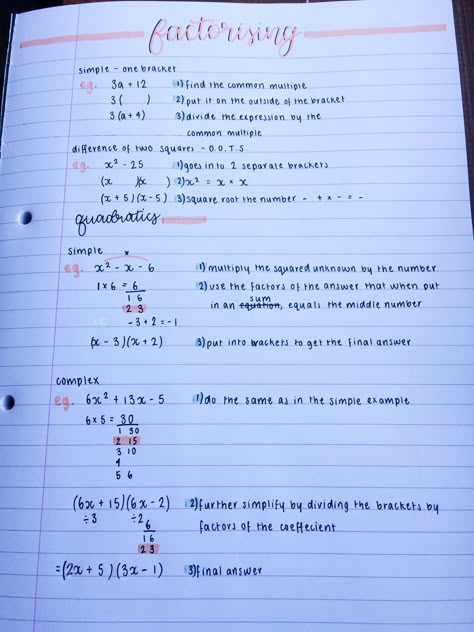 factorising
simple - one bracket
eg. 3a + 12 1) find the common multiple
3 ( ) 2) put it on the outside of the bracket
3 (a + 4) 3) divide the expression by the
common multiple
difference of two squares - D.O.T.S
eg. x² - 25 1) goes in to 2 separate brackets
(x )(x ) 2) x² = x × x
(x + 5)(x - 5) 3) square root the number - + × - = -
quadratics
simple
x
eg. x² - x - 6 1) multiply the squared unknown by the number
1 × 6 = 6 2) use the factors of the answer that when put
1 6 sum
2 3 in an equation, equals the middle number
- 3 + 2 = - 1
(x - 3)(x + 2) 3) put into brackets to get the final answer
complex
eg. 6x² + 13x - 5 1) do the same as in the simple example
6 × 5 = 30
1 30
2 15
3 10
4
5 6
(6x + 15)(6x - 2) 2) further simplify by dividing the brackets by
÷3 ÷2 6 factors of the coeffecient
1 6
2 3
= (2x + 5)(3x - 1) 3) final answer